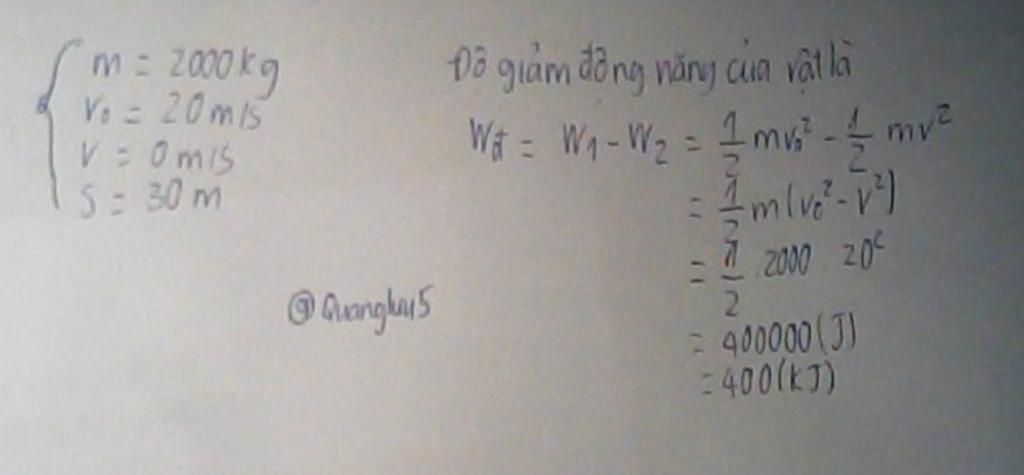 m = 2000kg
v₀ = 20m/s
v = 0m/s
S = 30m
Độ giảm động năng của vật là
Wđ = W₁ - W₂ = 1/2 mv₀² - 1/2 mv²
= 1/2 m(v₀² - v²)
= 1/2 . 2000 20²
= 400000 (J)
= 400 (kJ)